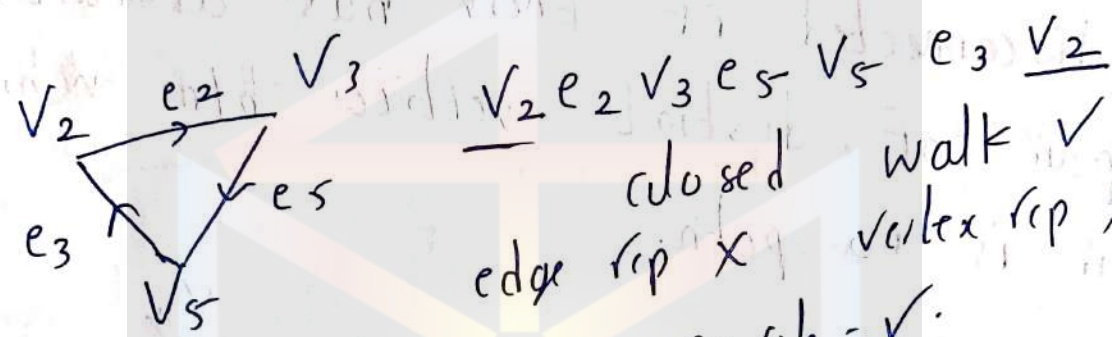 V2 e2 V3
e3 e5
V5
V2 e2 V3 e5 V5 e3 V2
closed walk ✓
edge rep X vertex rep